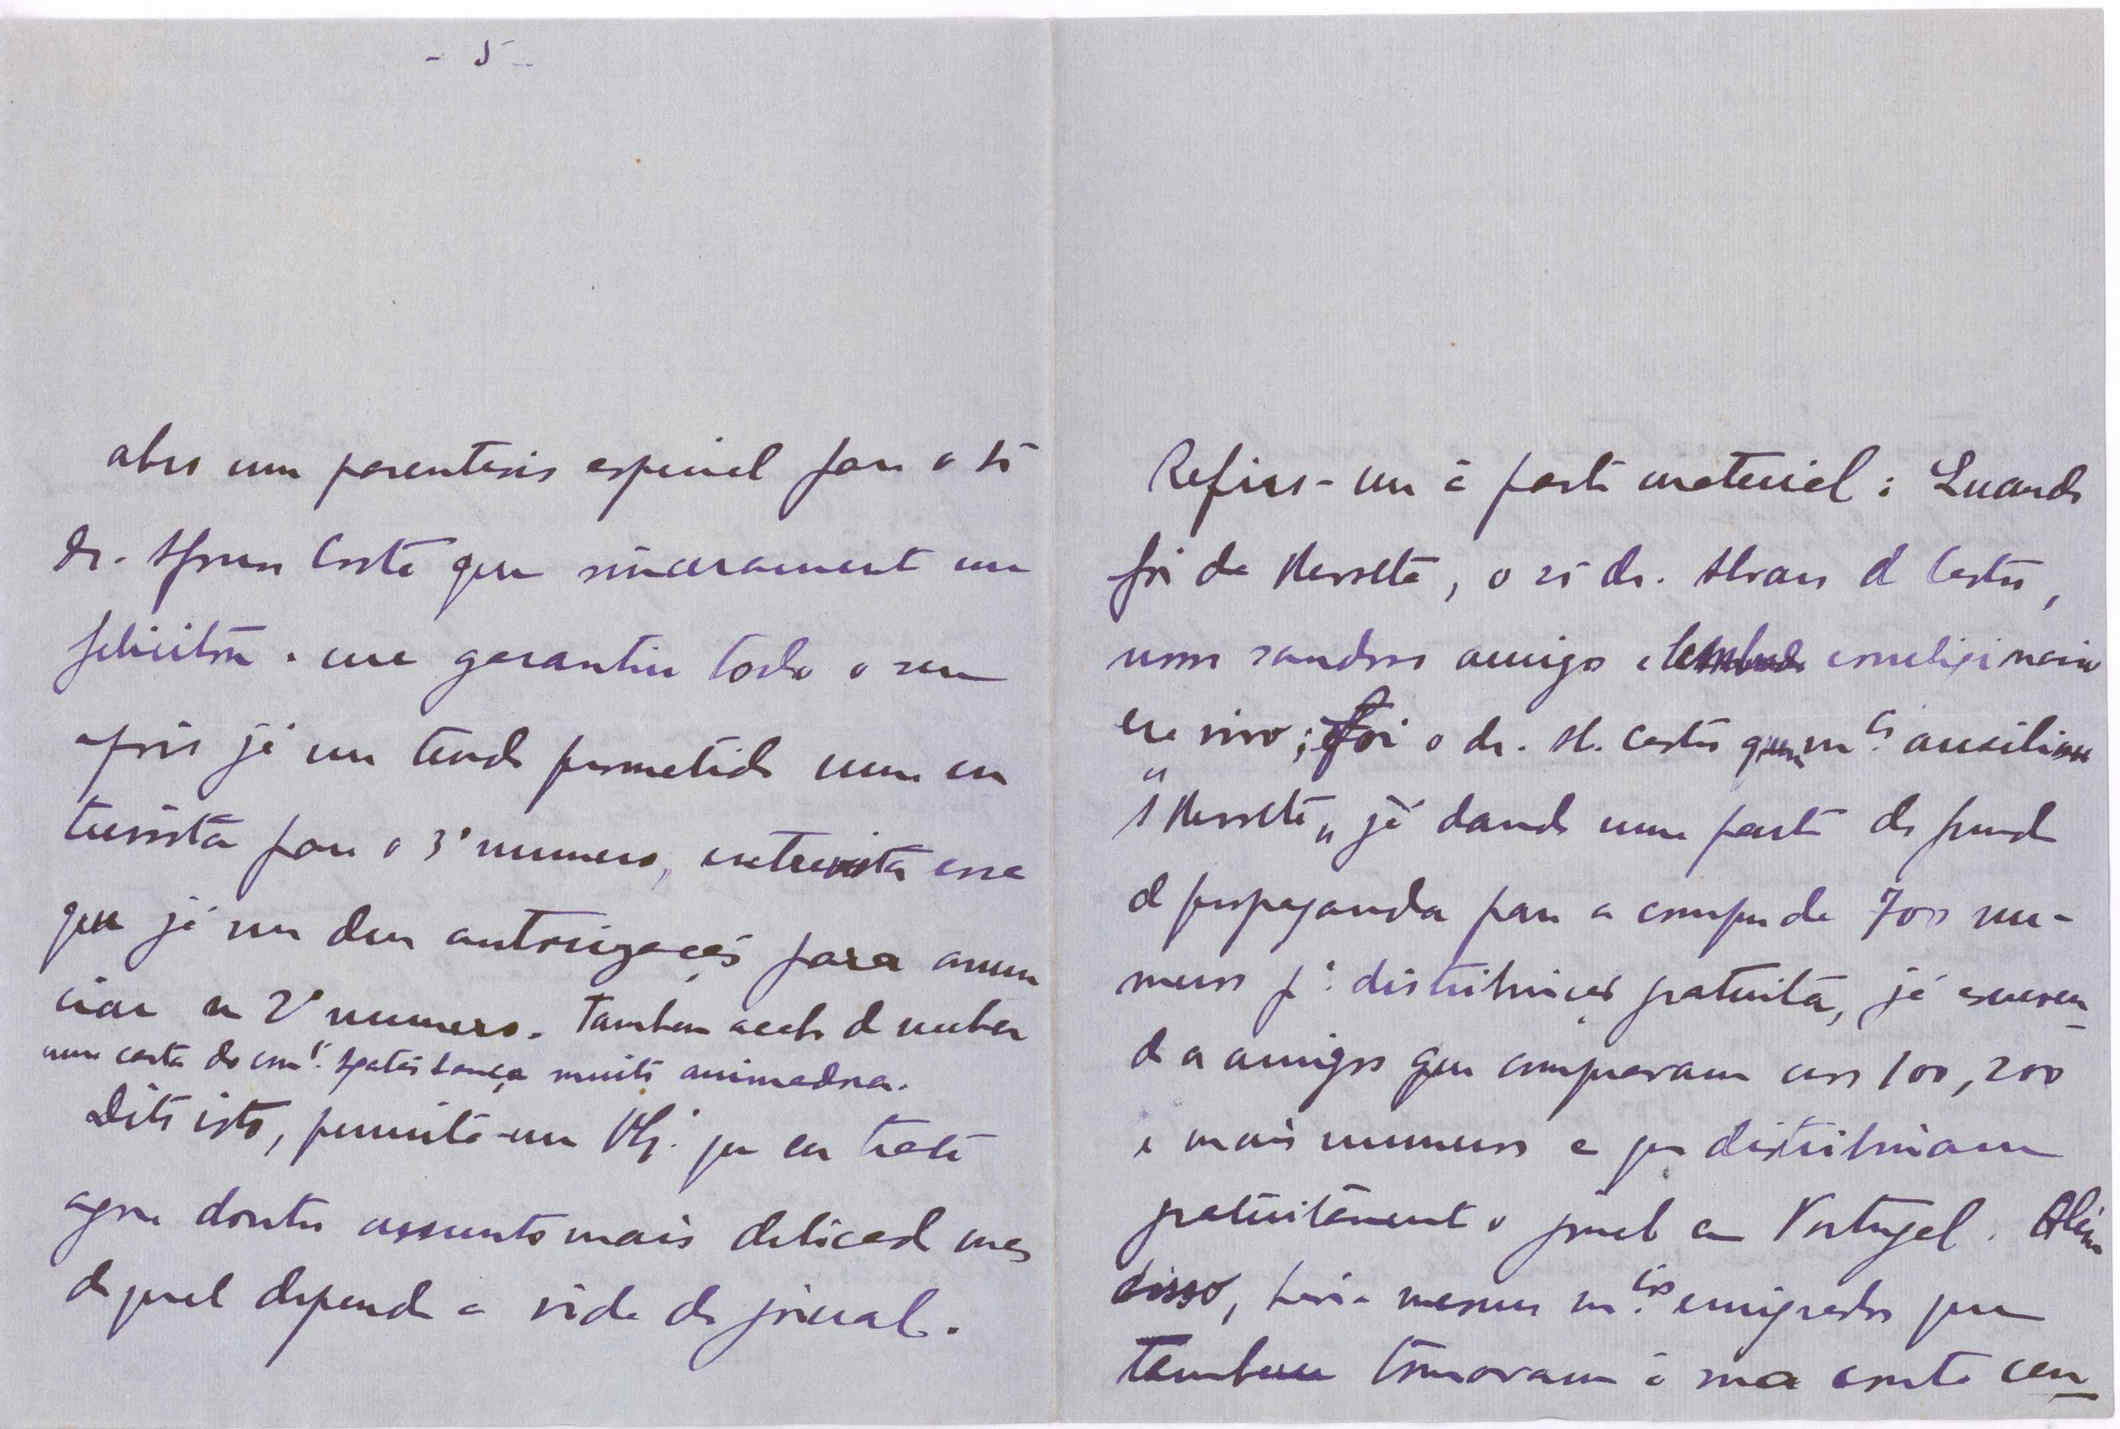 - 5 -
abro um parentesis especial para o sr
dr. Afonso Costa que sinceramente me
felicitou e me garantiu todo o seu
apoio já me tendo prometido uma en
trevista para o 3º numero, entrevista essa
que já me deu autorização para anun
ciar no 2º numero. Tambem acabo de receber
uma carta do com.te muito animadora.
Dito isto, permita-me V. Ex. que eu trate
agora doutro assunto mais delicado mas
do qual depende a vida do jornal.
Refiro-me á parte material: Quando
foi da Revolta, o sr dr. Alvaro de Castro,
nosso saudoso amigo e correligionario
era vivo; foi o dr. A. Castro quem m.to auxiliou
"A Revolta" já dando uma parte do fundo
de propaganda para a compra de 700 nu-
meros p.a distribuição gratuita, já escreven
do a amigos que compraram uns 100, 200
e mais numeros e que distribuiam
gratuitamente o jornal em Portugal. Alem
disso, havia mesmo m.tos emigrados que
tambem tomavam á sua conta cen